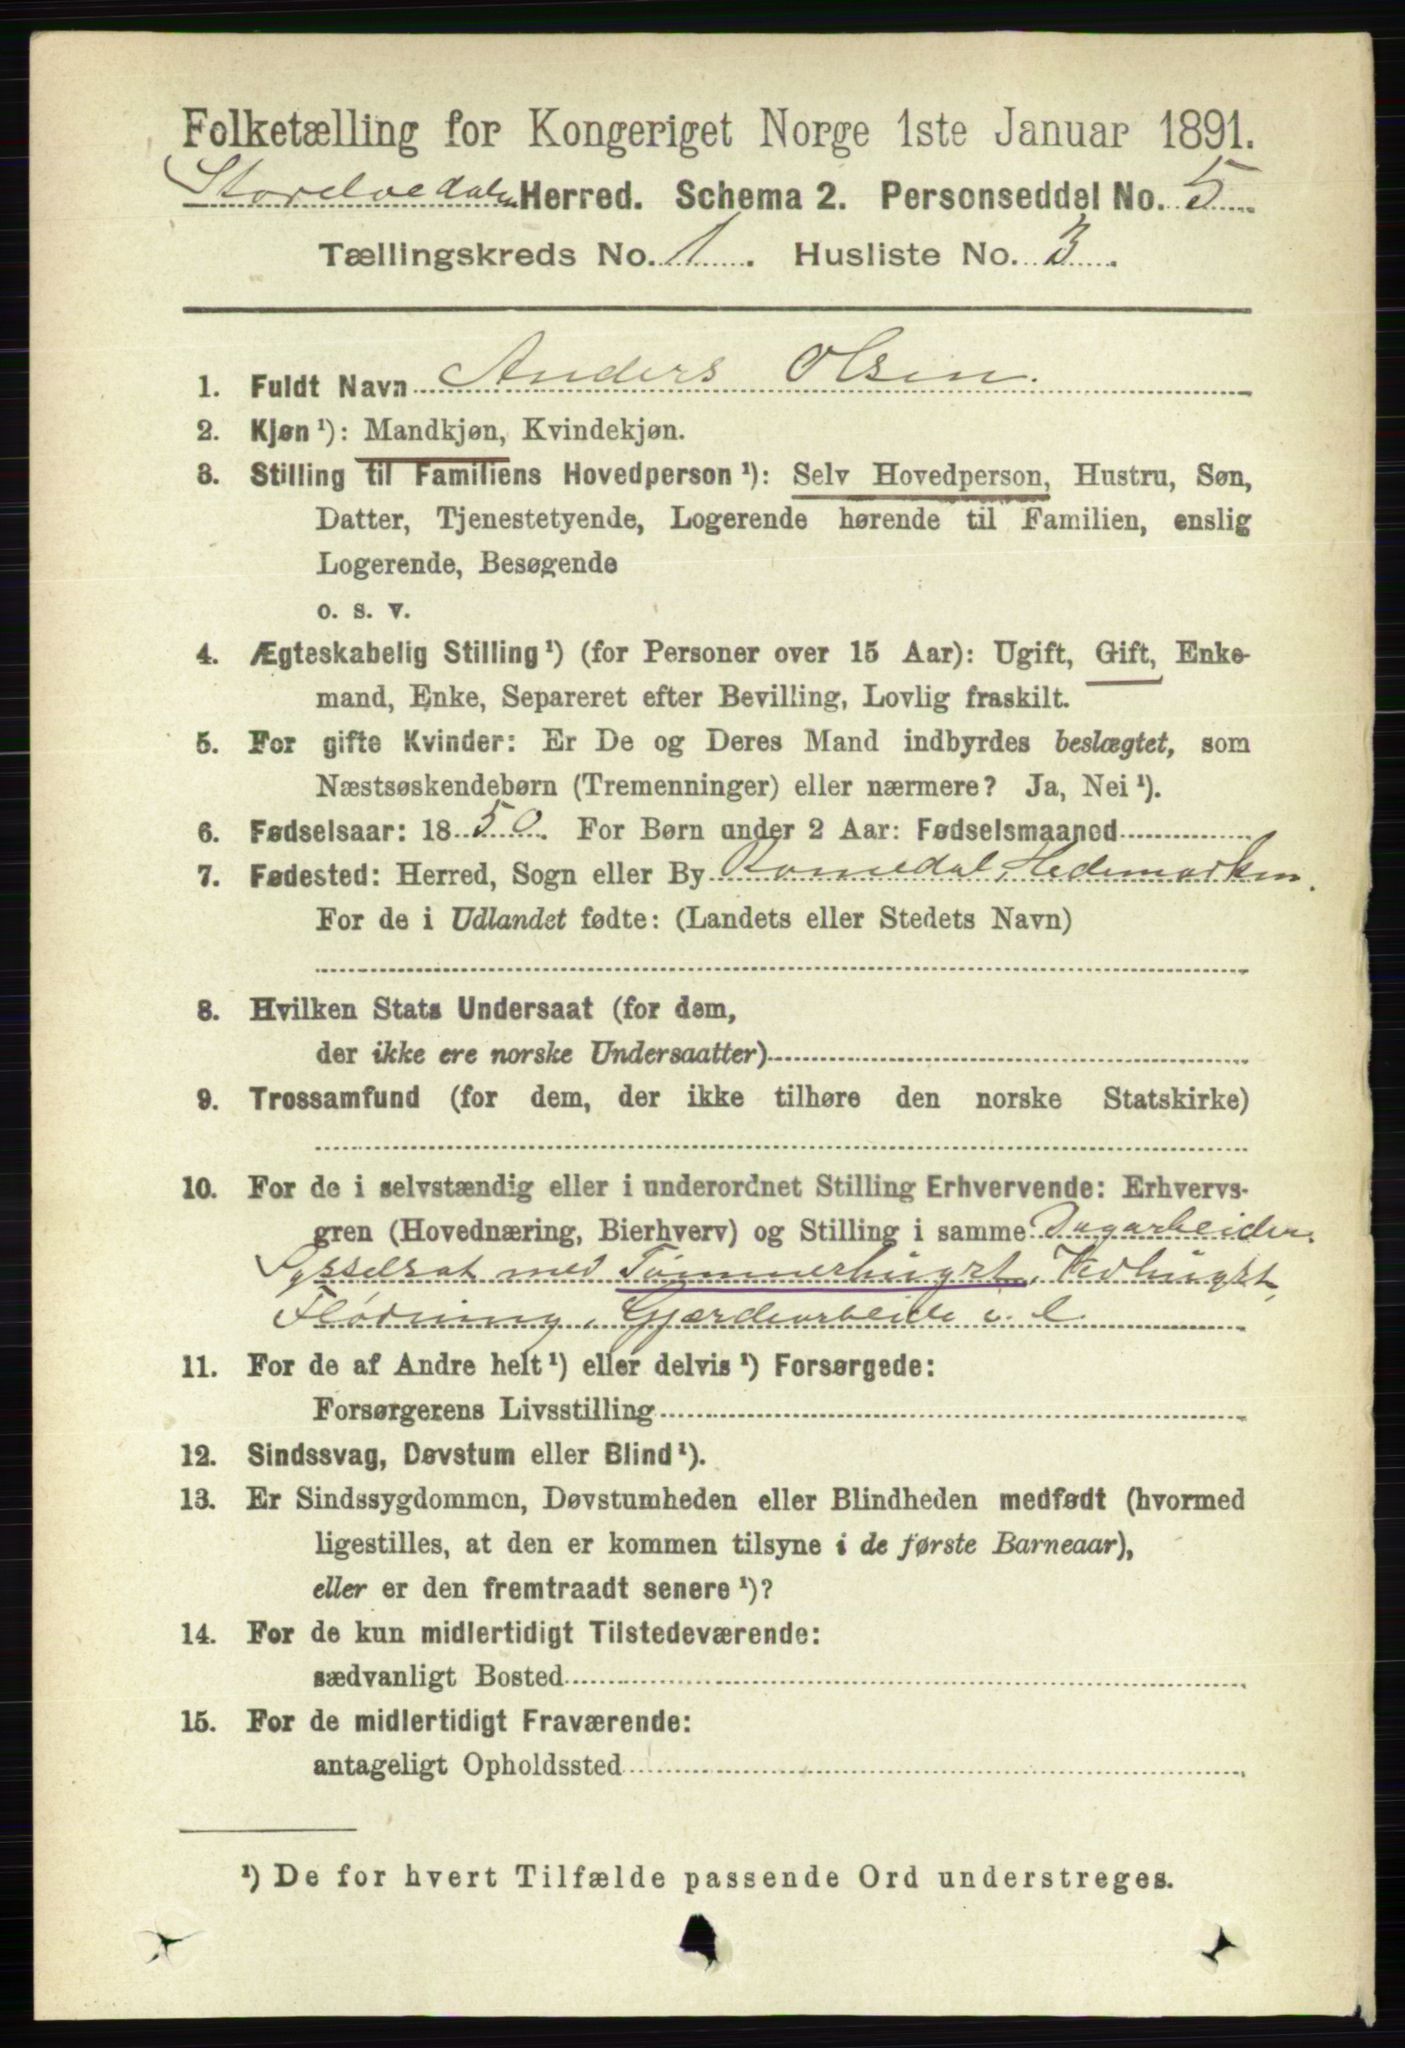 Folketælling for Kongeriget Norge 1ste Januar 1891.
Storelvedalen Herred. Schema 2. Personseddel No. 5
Tællingskreds No. 1. Husliste No. 3.
1. Fuldt Navn Anders Olsen.
2. Kjøn ¹): Mandkjøn, Kvindekjøn.
3. Stilling til Familiens Hovedperson ¹): Selv Hovedperson, Hustru, Søn,
Datter, Tjenestetyende, Logerende hørende til Familien, enslig
Logerende, Besøgende
o. s. v.
4. Ægteskabelig Stilling ¹) (for Personer over 15 Aar): Ugift, Gift, Enke-
mand, Enke, Separeret efter Bevilling, Lovlig fraskilt.
5. For gifte Kvinder: Er De og Deres Mand indbyrdes beslægtet, som
Næstsøskendebørn (Tremenninger) eller nærmere? Ja, Nei ¹).
6. Fødselsaar: 1850. For Børn under 2 Aar: Fødselsmaaned
7. Fødested: Herred, Sogn eller By Romedal, Hedemarken.
For de i Udlandet fødte: (Landets eller Stedets Navn)
8. Hvilken Stats Undersaat (for dem,
der ikke ere norske Undersaatter)
9. Trossamfund (for dem, der ikke tilhøre den norske Statskirke)
10. For de i selvstændig eller i underordnet Stilling Erhvervende: Erhvervs-
gren (Hovednæring, Bierhverv) og Stilling i samme Dagarbeider.
Sysselsat med Tømmerhugst, Vedhugst,
Flødning, Gjærdearbeide o. l.
11. For de af Andre helt ¹) eller delvis ¹) Forsørgede:
Forsørgerens Livsstilling
12. Sindssvag, Døvstum eller Blind ¹).
13. Er Sindssygdommen, Døvstumheden eller Blindheden medfødt (hvormed
ligestilles, at den er kommen tilsyne i de første Barneaar),
eller er den fremtraadt senere ¹)?
14. For de kun midlertidigt Tilstedeværende:
sædvanligt Bosted
15. For de midlertidigt Fraværende:
antageligt Opholdssted
¹) De for hvert Tilfælde passende Ord understreges.